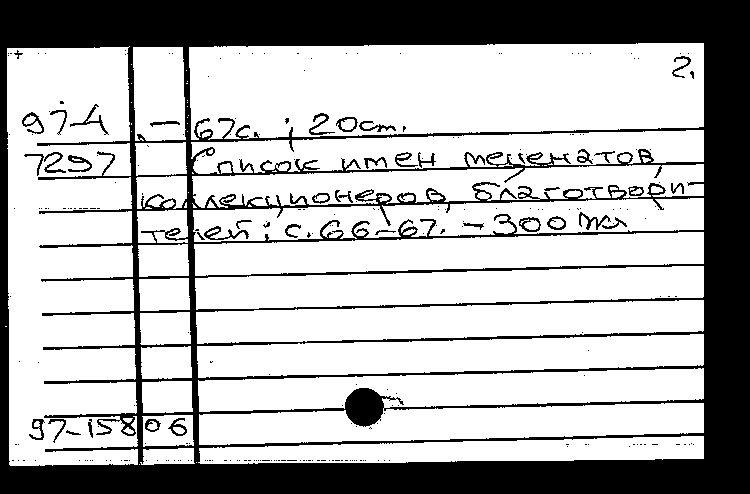 2.
97-4 .– 67с. ; 20см.
7297 Список имен меценатов,
коллекционеров, благотвори-
телей: с. 66-67. – 300 экз
97-15806